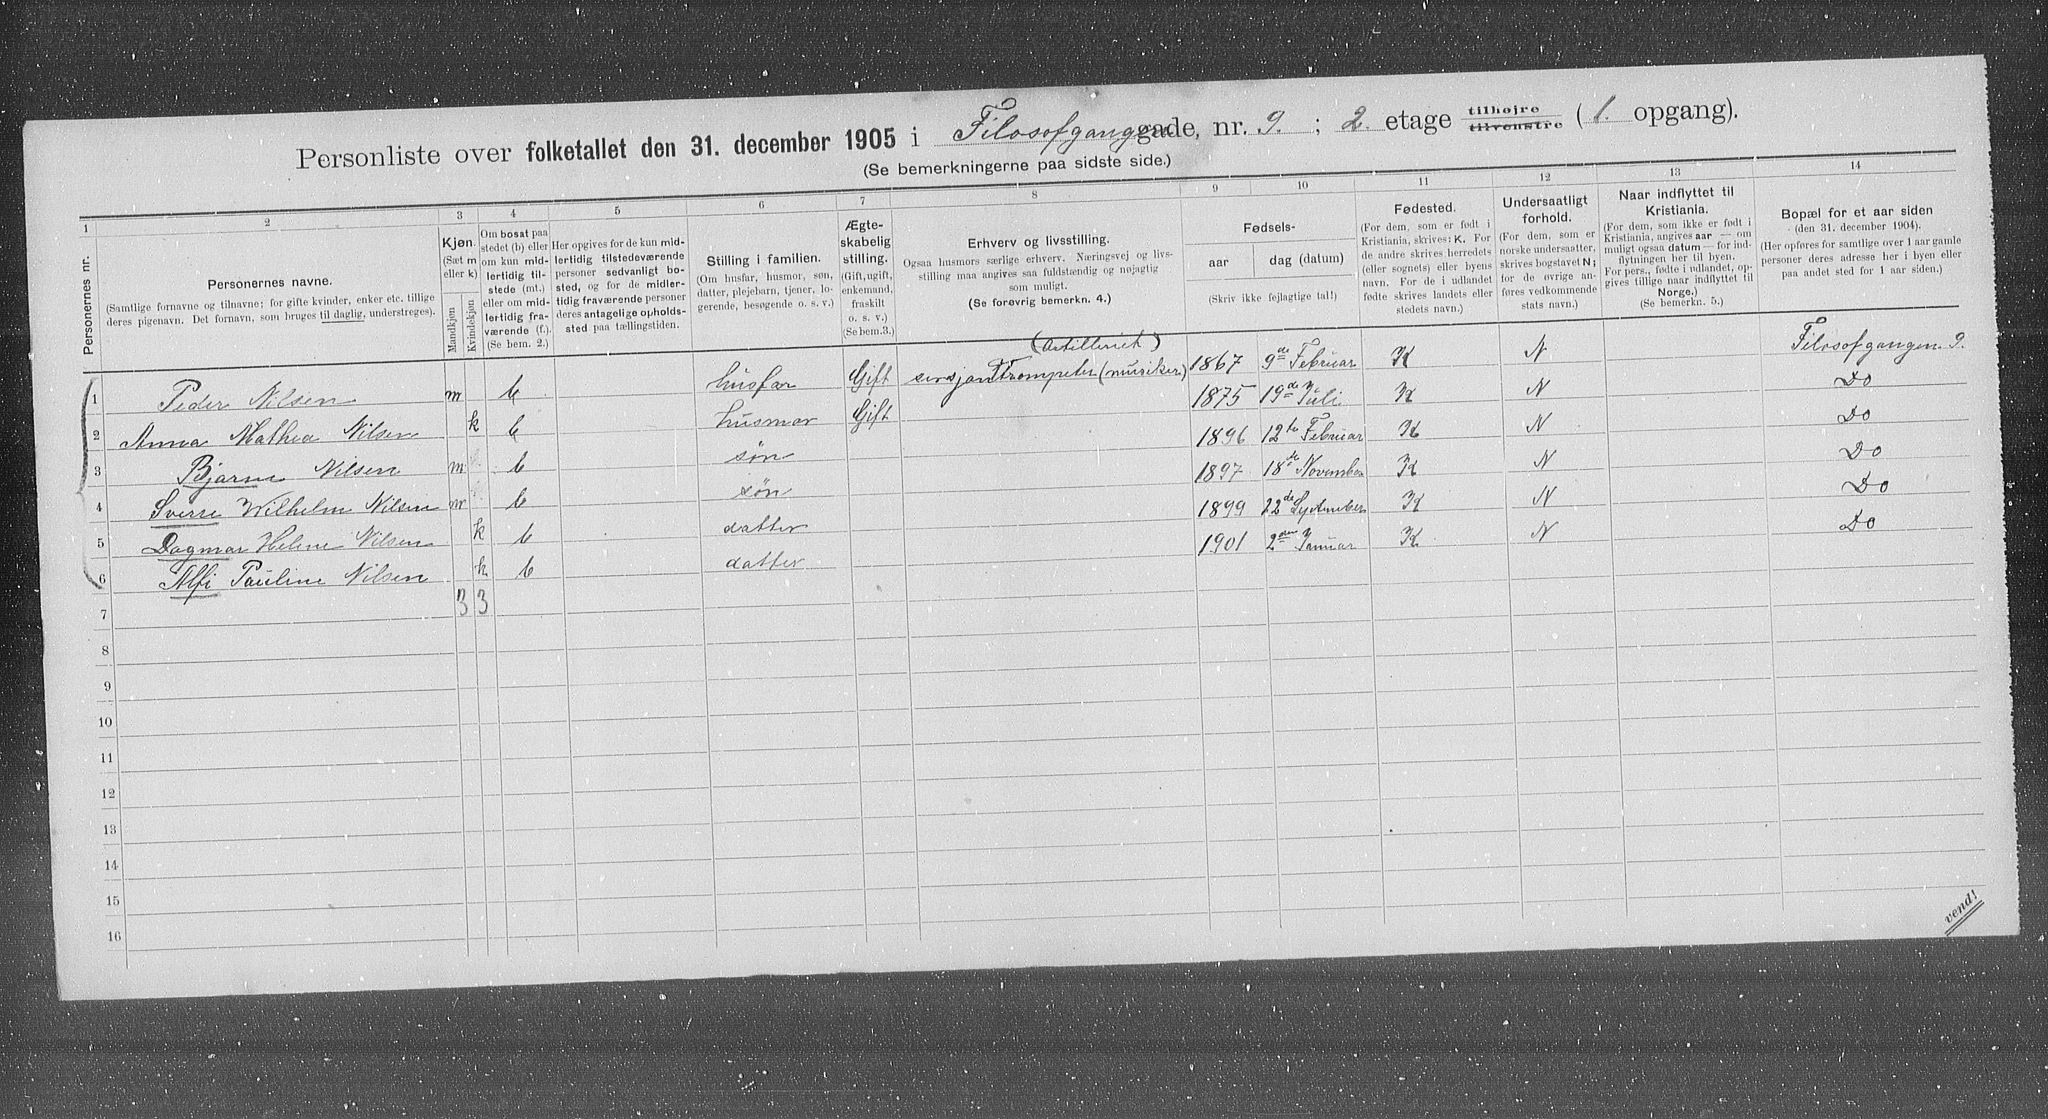 Personliste over folketallet den 31. december 1905 i Filosofgangen gade, nr. 9. ; 2. etage tilhøjre tilvenstre ( 1. opgang).
(Se bemerkningerne paa sidste side.)
1 2 3 4 5 6 7 8 9 10 11 12 13 14
Personernes nr.
Personernes navne.
(Samtlige fornavne og tilnavne; for gifte kvinder, enker etc. tillige
deres pigenavn. Det fornavn, som bruges til daglig, understreges).
Kjøn.
(Sæt m
eller k)
Mandkjøn
Kvindekjøn
Om bosat paa
stedet (b) eller
om kun mid-
lertidig til-
stede (mt.)
eller om mid-
lertidig fra-
værende (f.)
(Se bem. 2.)
Her opgives for de kun mid-
lertidig tilstedeværende
personer sedvanligt bo-
sted, og for de midler-
tidig fraværende personer
deres antagelige opholds-
sted paa tællingstiden.
Stilling i familien.
(Om husfar, husmor, søn,
datter, plejebarn, tjener, lo-
gerende, besøgende o. s. v.)
Ægte-
skabelig
stilling.
(Gift, ugift,
enkemand,
fraskilt
o. s. v.)
(Se bem.3.)
Erhverv og livsstilling.
Ogsaa husmors særlige erhverv. Næringsvej og livs-
stilling maa angives saa fuldstændig og nøjagtig
som muligt.
(Se forøvrig bemerkn. 4.)
Fødsels-
aar
dag (datum)
(Skriv ikke fejlagtige tal!)
Fødested.
(For dem, som er født i
Kristiania, skrives: K. For
de andre skrives herredets
(eller sognets) eller byens
navn. For de i udlandet
fødte skrives landets eller
stedets navn.)
Undersaatligt
forhold.
(For dem, som er
norske undersaatter,
skrives bogstavet N;
for de øvrige an-
føres vedkommende
stats navn.)
Naar indflyttet til
Kristiania.
(For dem, som ikke er født i
Kristiania, angives aar — om
muligt ogsaa datum — for ind-
flytningen her til byen.
For pers., fødte i udlandet, op-
gives tillige naar indflyttet til
Norge.)
(Se bemerkn. 5.)
Bopæl for et aar siden
(den 31. december 1904).
(Her opføres for samtlige over 1 aar gamle
personer deres adresse her i byen eller
paa andet sted for 1 aar siden.)
(Artilleriet)
1 Peder Nilsen m b husfar Gift sersjant Trompeter (musiker) 1867 9de Februar K N Filosofgangen 9.
2 Anna Mathea Nilsen k b husmor Gift 1875 19de Juli K N Do
3 Bjarne Nilsen m b søn 1896 12te Februar K N Do
4 Sverre Wilhelm Nilsen m b søn 1897 18de November K N Do
5 Dagmar Helene Nilsen k b datter 1899 22de September K N Do
6 Alfi Pauline Nilsen k b datter 1901 2den Januar K N Do
7 3 3
8
9
10
11
12
13
14
15
16
vend!